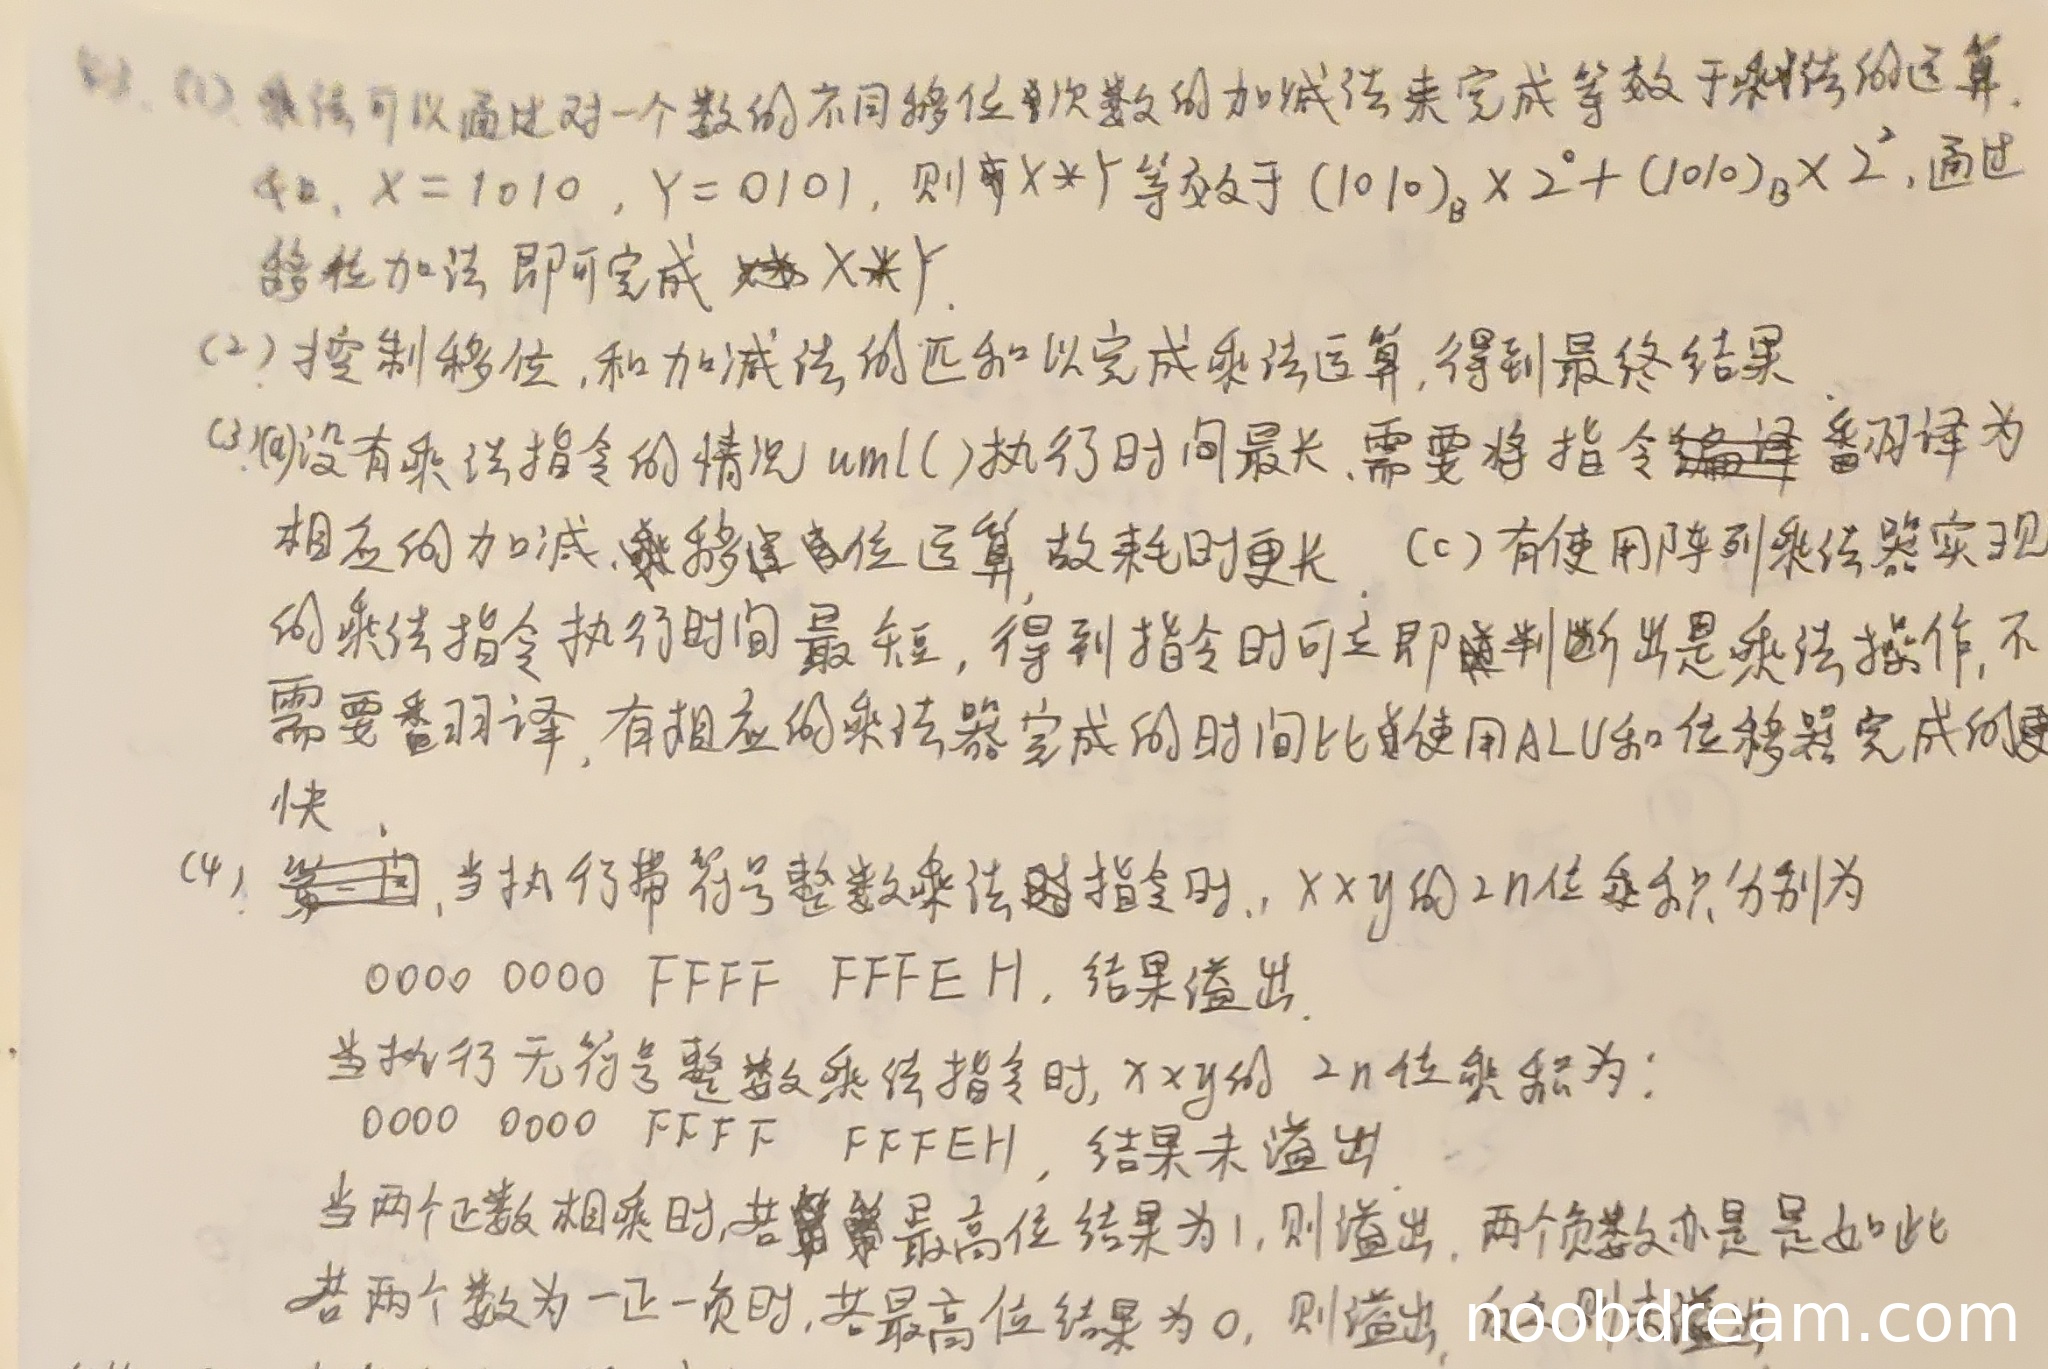 (1) 乘法可以通过对一个数的不同移位次数的加减法来完成等效于乘法的运算.
如, X=1010, Y=0101, 则X*Y等效于(1010)B×2⁰+(1010)B×2², 通过
移位加法即可完成 X*Y.
(2) 控制移位,和加减法的匹和以完成乘法运算,得到最终结果.
(3) (a)没有乘法指令的情况uml()执行时间最长,需要将指令翻译为
相应的加减、移位运算,故耗时更长. (c)有使用阵列乘法器实现
的乘法指令执行时间最短,得到指令时可立即判断出是乘法操作,不
需要翻译,有相应的乘法器完成的时间比使用ALU和位移器完成的更
快.
(4) 当执行带符号整数乘法指令时, x×y的2n位乘积分别为
0000 0000 FFFF FFFEH, 结果溢出.
当执行无符号整数乘法指令时, x×y的 2n位乘积为:
0000 0000 FFFF FFFEH, 结果未溢出.
当两个正数相乘时,若最高位结果为1,则溢出,两个负数亦是是如此
若两个数为一正一负时,若最高位结果为0,则溢出,
noobdream.com